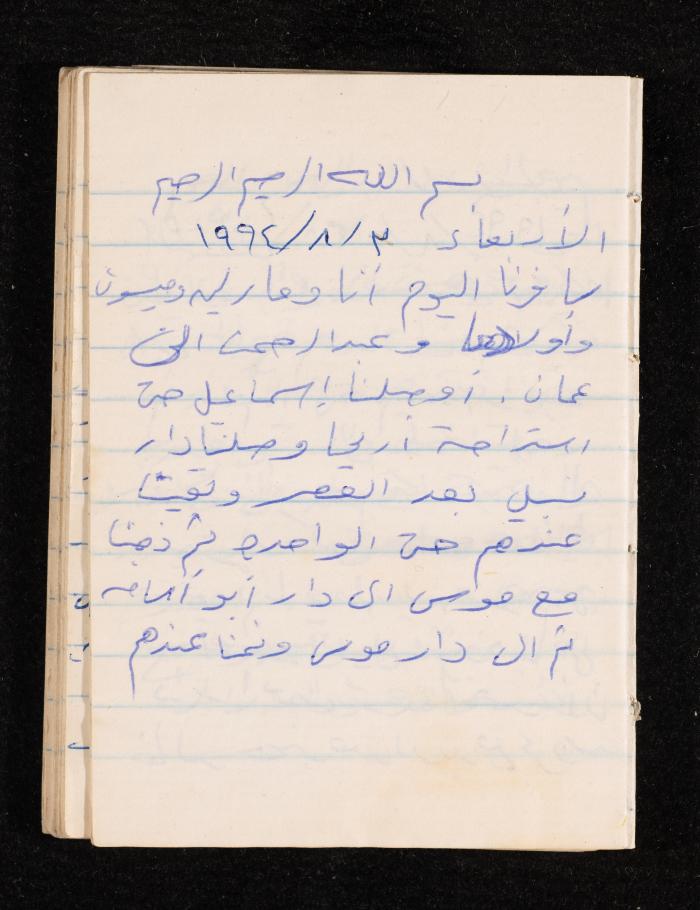 بسم الله الرحيم الرحيم
الأربعاء ١٩٩٤/٨/٣
سافرنا اليوم أنا وعارليه وميسون
وأولادها وعبدالرحمن الى
عمان. أوصلنا إسماعيل حتى
استراحة أريحا وصلنا دار
نسيبي بعد العصر وبقينا
عندهم حتى الواحده ثم ذهبنا
مع موسى الى دار أبو أسامه
ثم الى دار موسى ونمنا عندهم